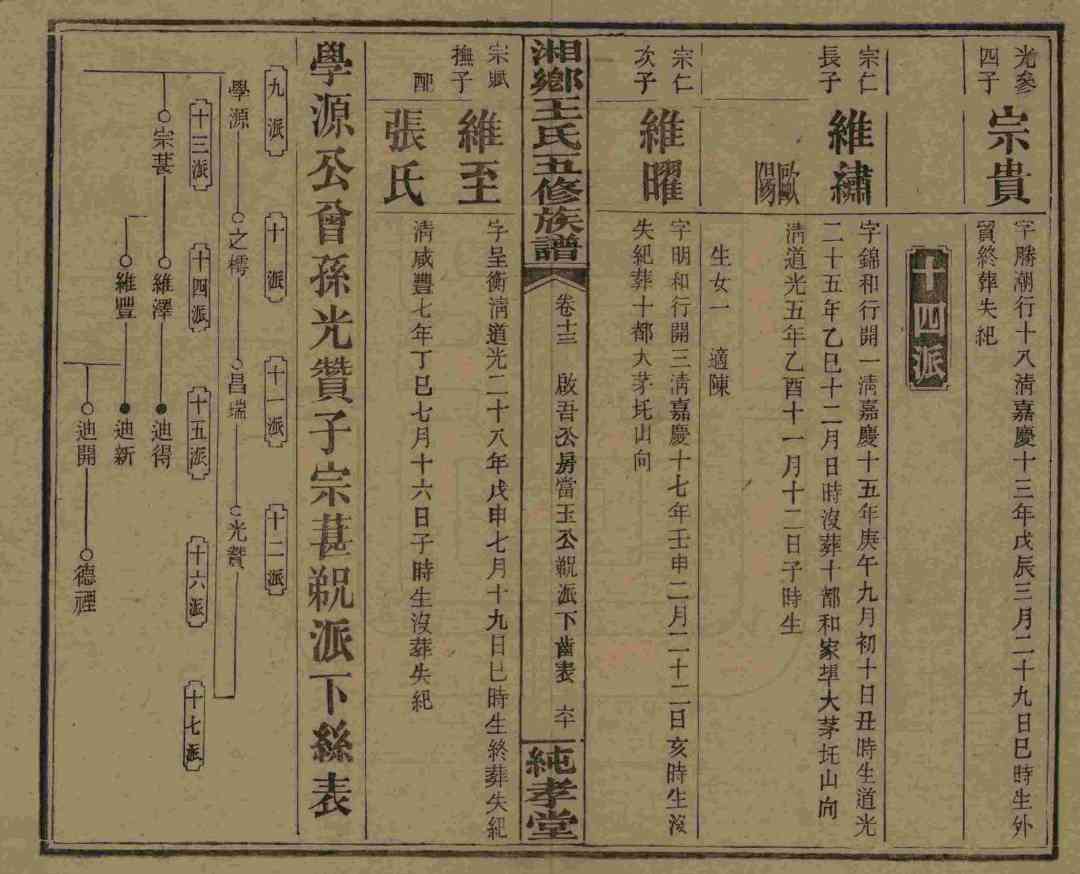 光參
四子
宗貴
字勝潮行十八清嘉慶十三年戊辰三月二十九日巳時生外
貿終葬失紀
十四派
宗仁
長子
維繡
字錦和行開一清嘉慶十五年庚午九月初十日丑時生道光
二十五年乙巳十二月日時沒葬十都和家㙩大茅坵山向
歐陽
清道光五年乙酉十一月十二日子時生
生女一　適陳
宗仁
次子
維曜
字明和行開三清嘉慶十七年壬申二月二十二日亥時生沒
失紀葬十都大茅坵山向
湘鄉王氏五修族譜
卷十三　啟吾公房當玉公𧠇派下齒表　六十
純孝堂
宗賦
撫子
維至
字呈衡清道光二十八年戊申七月十九日巳時生終葬失紀
配
張氏
清咸豐七年丁巳七月十六日子時生沒葬失紀
學源公曾孫光贊子宗葚𧠇派下絲表
九派
十派
十一派
十二派
學源
之樗
昌瑞
光贊
十三派
十四派
十五派
十六派
十七派
宗葚
維澤
迪得
維豐
迪新
迪開
德禋